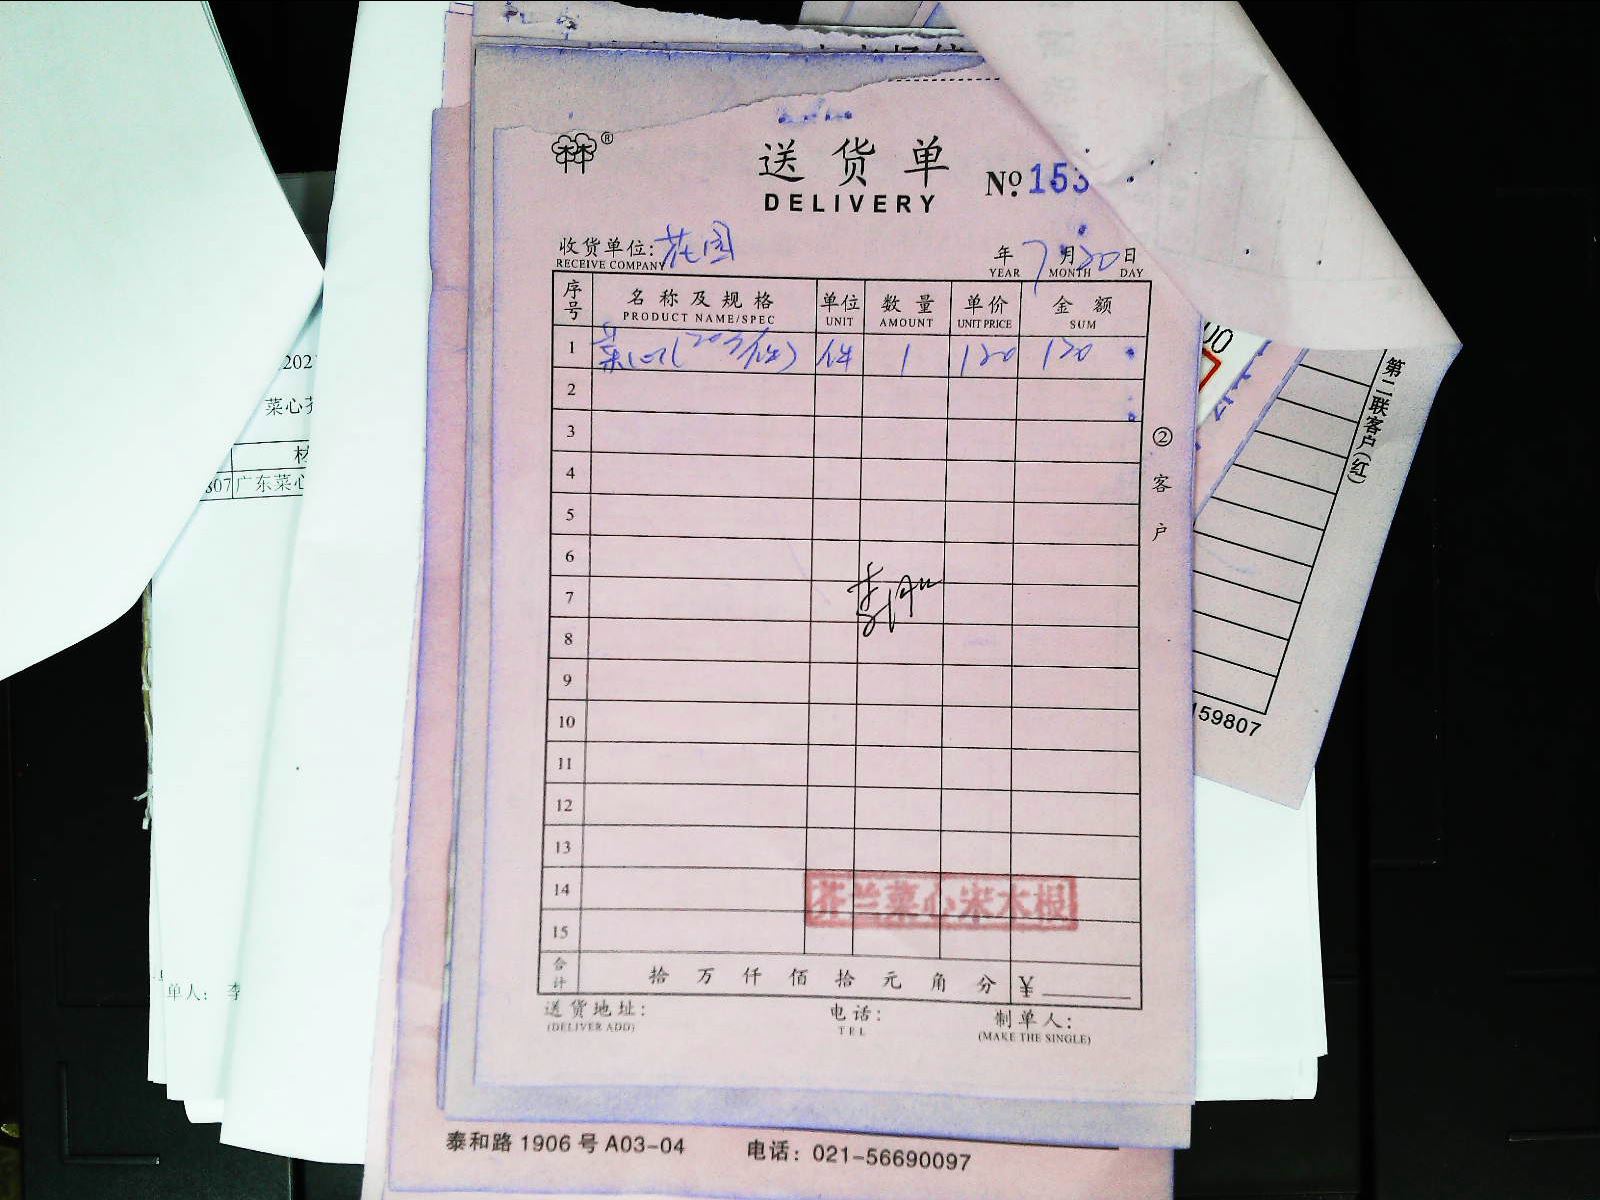 送货单
DELIVERY
№ 153
收货单位: 花园
RECEIVE COMPANY
年 7 月 20 日
YEAR MONTH DAY
序号 名称及规格 单位 数量 单价 金额
PRODUCT NAME/SPEC UNIT AMOUNT UNIT PRICE SUM
1 菜心(20斤/件) 件 1 120 120
2
3
4
5
6
7
8
9
10
11
12
13
14
15
芥兰菜心宋木根
合计 拾 万 仟 佰 拾 元 角 分 ¥
送货地址: 电话: 制单人:
(DELIVER ADD) TEL (MAKE THE SINGLE)
② 客户
泰和路1906号A03-04 电话: 021-56690097
第二联客户(红)
159807
00
202
菜心
807 广东菜心
单人: 李